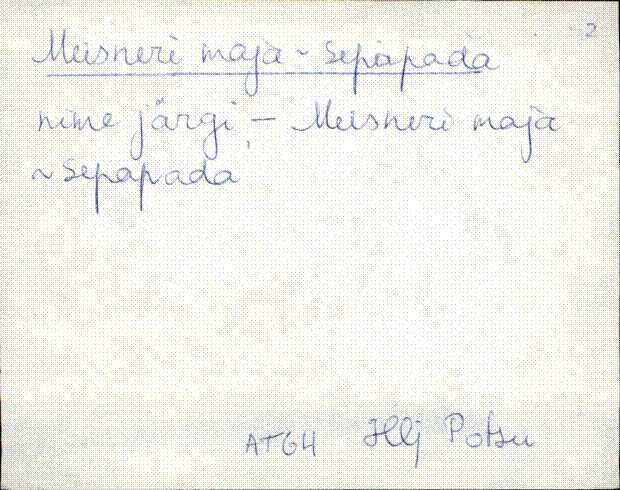 2
Meisneri maja ~ Sepapada
nime järgi, - Meisneri maja
~ Sepapada
AT64 Hlj Potsu